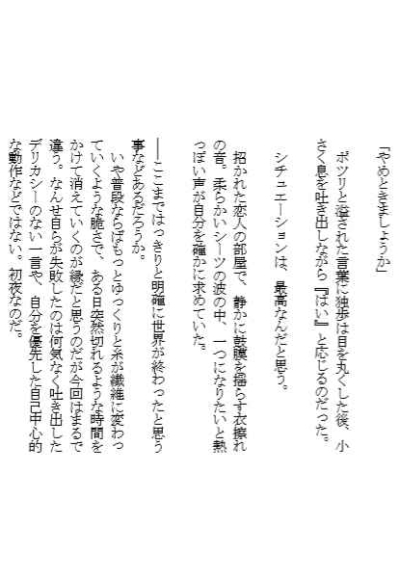 「やめときましょうか」
　ポツリと溢された言葉に独歩は目を丸くした後、小
さく息を吐き出しながら『はい』と応じるのだった。
　シチュエーションは、最高なんだと思う。
　招かれた恋人の部屋で、静かに鼓膜を揺らす衣擦れ
の音。柔らかいシーツの波の中、一つになりたいと熱
っぽい声が自分を確かに求めていた。
――ここまではっきりと明確に世界が終わったと思う
事などあるだろうか。
　いや普段ならばもっとゆっくりと糸が繊維に変わっ
ていくような脆さで、ある日突然切れるような時間を
かけて消えていくのが縁だと思うのだが今回はまるで
違う。なんせ自らが失敗したのは何気なく吐き出した
デリカシーのない一言や、自分を優先した自己中心的
な動作などではない。初夜なのだ。